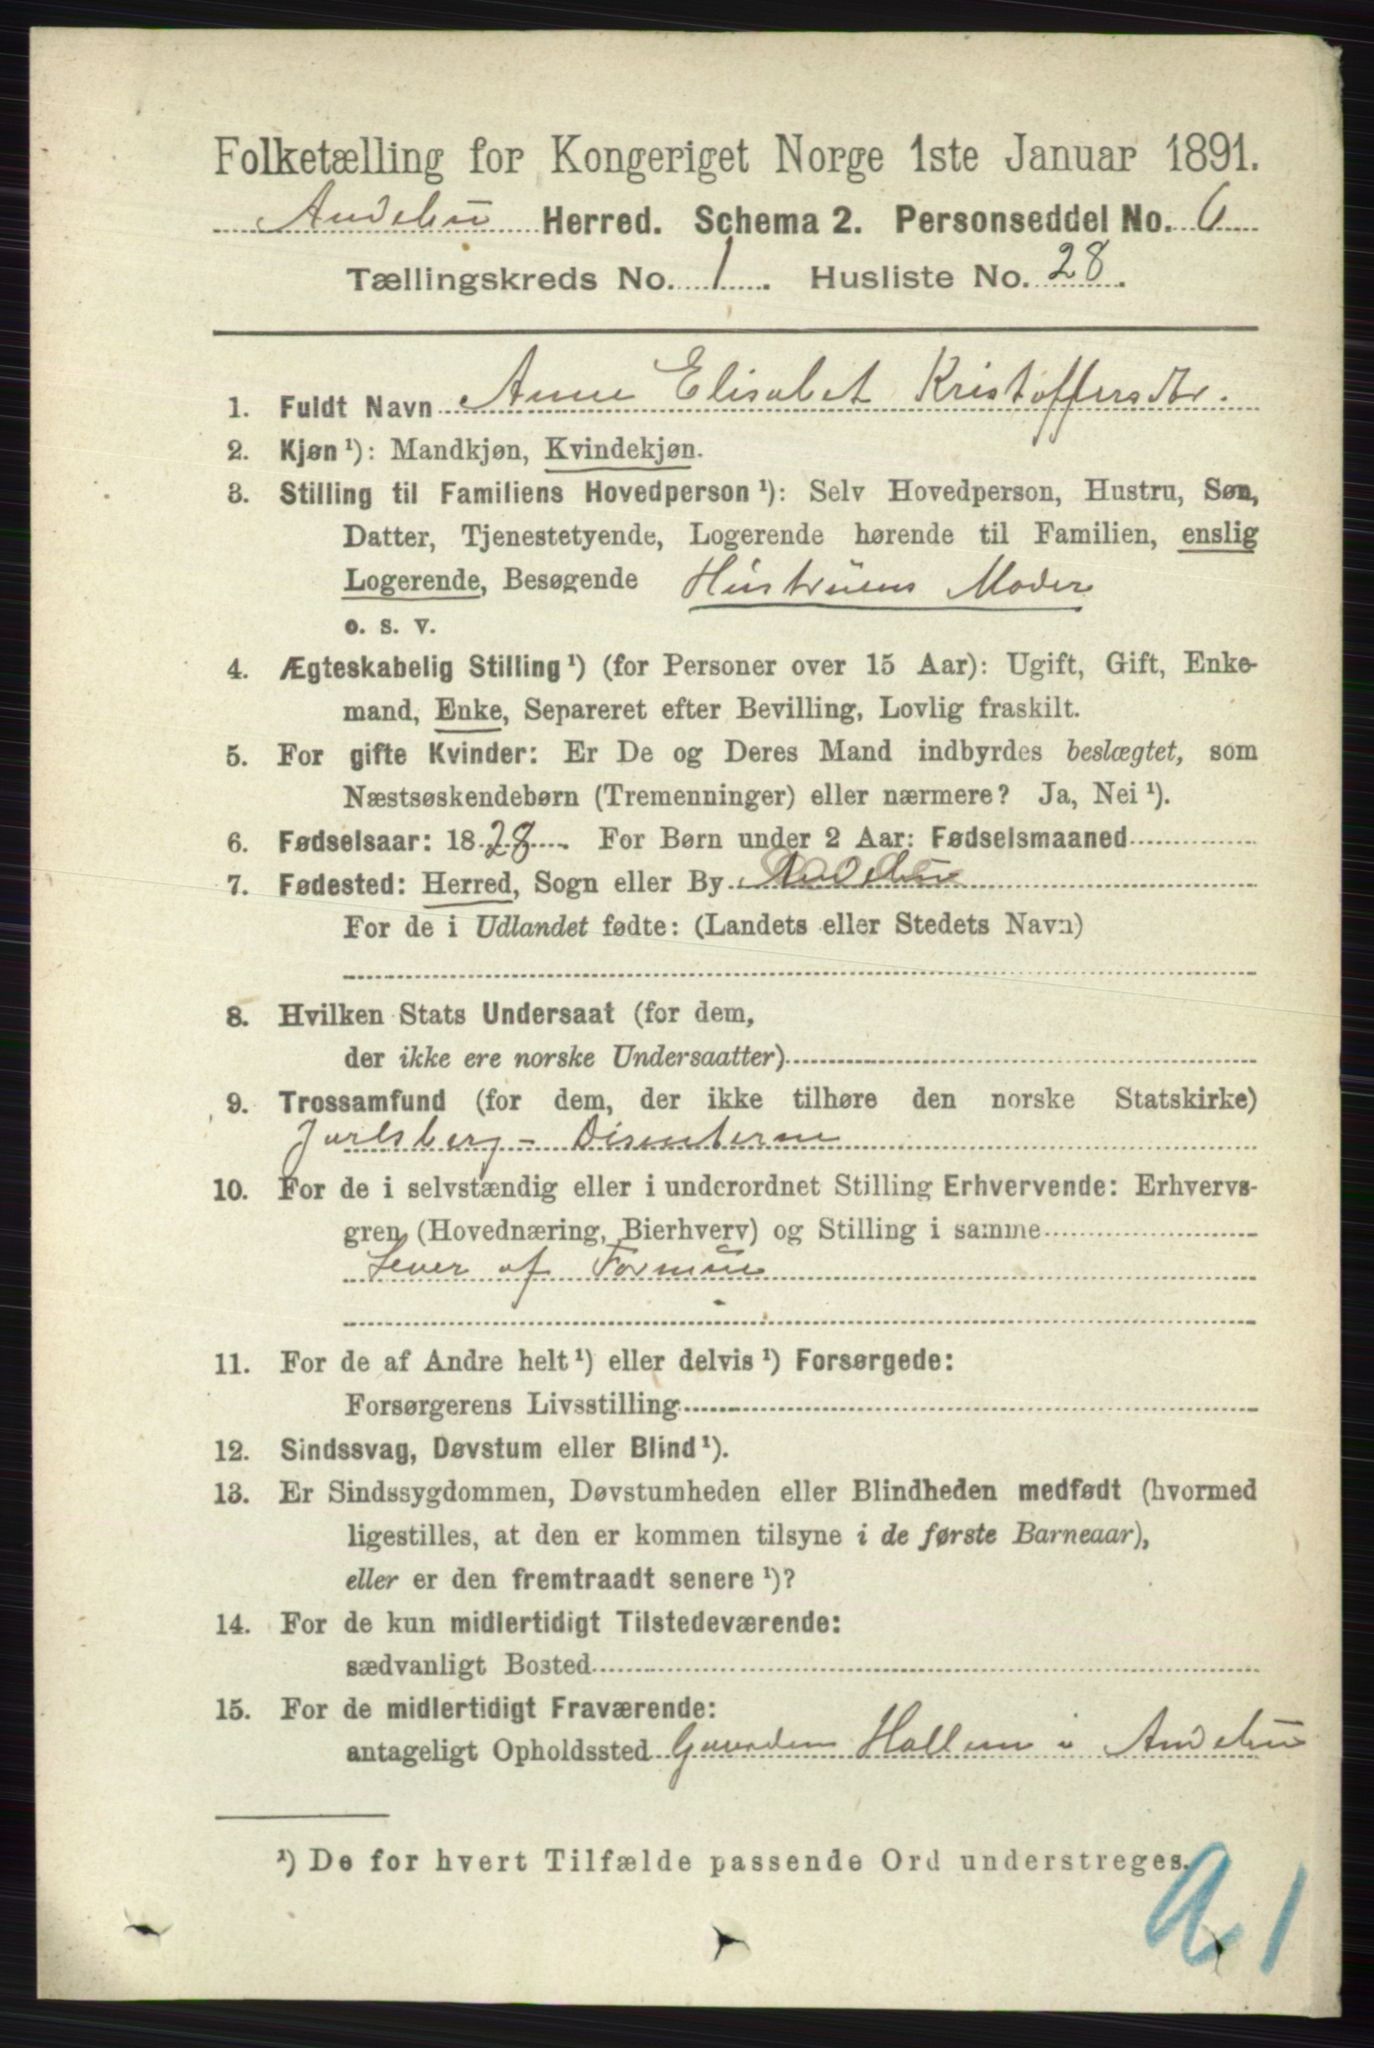 Folketælling for Kongeriget Norge 1ste Januar 1891.
Andebu Herred. Schema 2. Personseddel No. 6
Tællingskreds No. 1. Husliste No. 28.
1. Fuldt Navn Anne Elisabet Kristoffersdtr.
2. Kjøn ¹): Mandkjøn, Kvindekjøn.
3. Stilling til Familiens Hovedperson ¹): Selv Hovedperson, Hustru, Søn,
Datter, Tjenestetyende, Logerende hørende til Familien, enslig
Logerende, Besøgende Hustruens Moder
o. s. v.
4. Ægteskabelig Stilling ¹) (for Personer over 15 Aar): Ugift, Gift, Enke-
mand, Enke, Separeret efter Bevilling, Lovlig fraskilt.
5. For gifte Kvinder: Er De og Deres Mand indbyrdes beslægtet, som
Næstsøskendebørn (Tremenninger) eller nærmere? Ja, Nei ¹).
6. Fødselsaar: 1828. For Børn under 2 Aar: Fødselsmaaned
7. Fødested: Herred, Sogn eller By Andebu
For de i Udlandet fødte: (Landets eller Stedets Navn)
8. Hvilken Stats Undersaat (for dem,
der ikke ere norske Undersaatter)
9. Trossamfund (for dem, der ikke tilhøre den norske Statskirke)
Jarlsberg - Disenterne
10. For de i selvstændig eller i underordnet Stilling Erhvervende: Erhvervs-
gren (Hovednæring, Bierhverv) og Stilling i samme
Lever af Formue
11. For de af Andre helt ¹) eller delvis ¹) Forsørgede:
Forsørgerens Livsstilling
12. Sindssvag, Døvstum eller Blind ¹).
13. Er Sindssygdommen, Døvstumheden eller Blindheden medfødt (hvormed
ligestilles, at den er kommen tilsyne i de første Barneaar),
eller er den fremtraadt senere ¹)?
14. For de kun midlertidigt Tilstedeværende:
sædvanligt Bosted
15. For de midlertidigt Fraværende:
antageligt Opholdssted Gaarden Hallem i Andebu
¹) De for hvert Tilfælde passende Ord understreges.